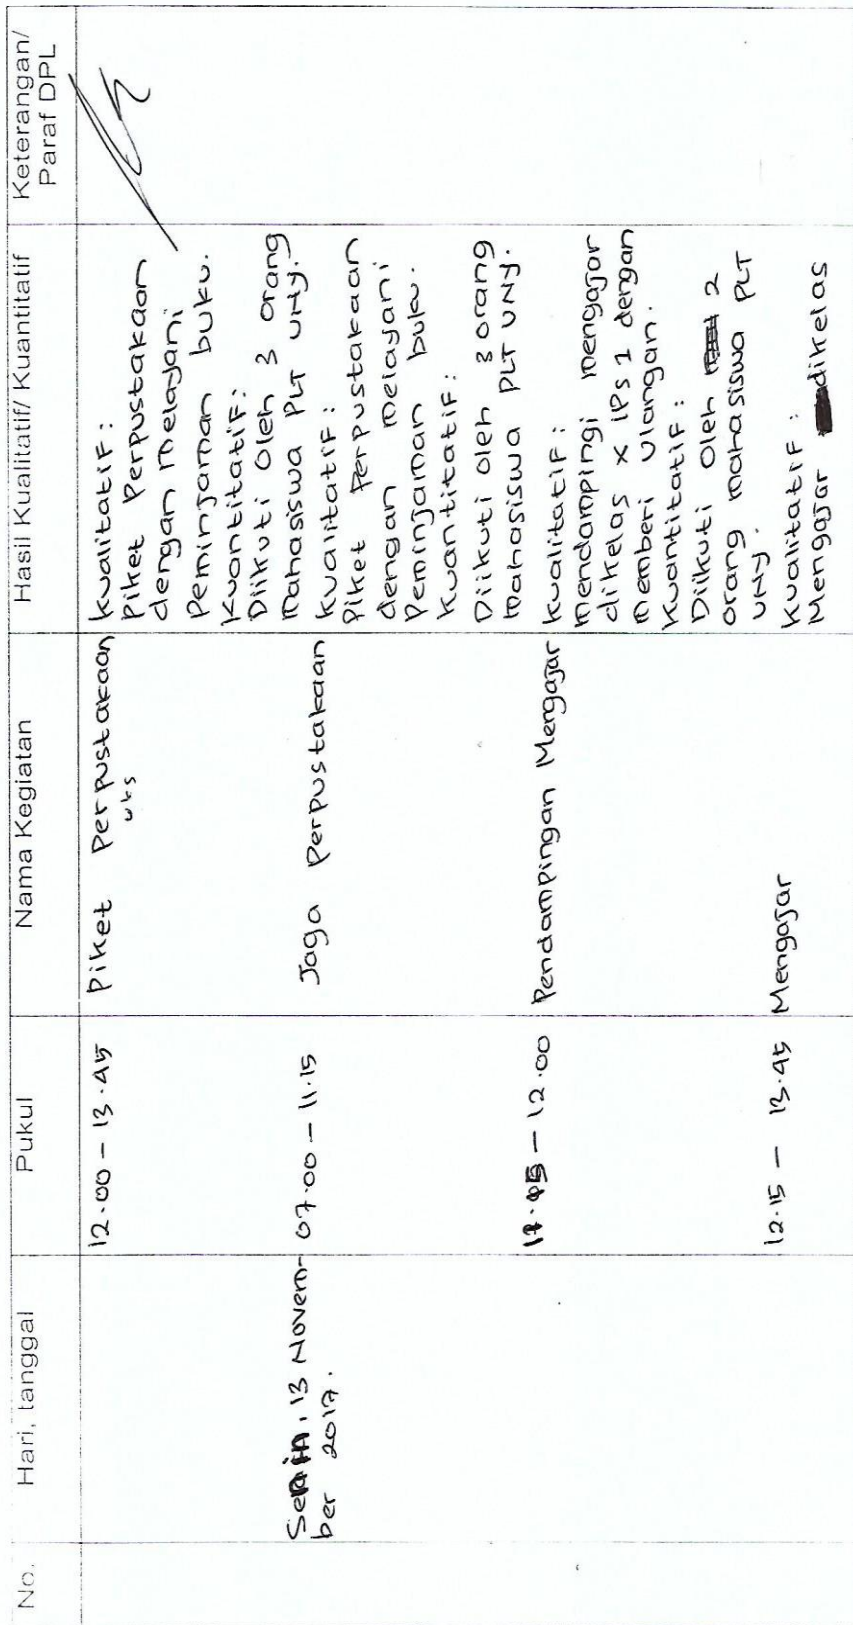 No.
Hari, tanggal
Pukul
Nama Kegiatan
Hasil Kualitatif/ Kuantitatif
Keterangan/
Paraf DPL
12.00 - 13.45
Piket Perpustakaan
uks
Kualitatif:
Piket Perpustakaan
dengan melayani
Peminjaman buku.
Kuantitatif:
Diikuti Oleh 3 orang
Mahasiswa PLT UNY.
Senin, 13 Novem-
ber 2017.
07.00 - 11.15
Jaga Perpustakaan
Kualitatif:
Piket Perpustakaan
dengan melayani
Peminjaman buku.
Kuantitatif:
Diikuti oleh 3 orang
Mahasiswa PLT UNY.
- 12.00
Pendampingan Mengajar
Kualitatif:
Mendampingi mengajar
dikelas X IPS 1 dengan
Memberi Ulangan.
Kuantitatif:
Diikuti Oleh 2
orang mahasiswa PLT
UNY.
12.15 - 13.45
Mengajar
Kualitatif:
Mengajar dikelas